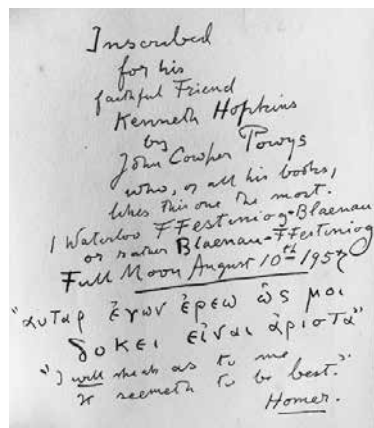 Inscribed
for his
faithful Friend
Kenneth Hopkins
by
John Cowper Powys
who, of all his books,
likes this one the most.
1 Waterloo FFestiniog-Blaenau
or rather Blaenau-FFestiniog
Full Moon August 10th 1957
"αυταρ ἐγων ἐρεω ὡς μοι
δοκει εἰναι ἀριστα"
"I will speak as to me
it seemeth to be best."
Homer.